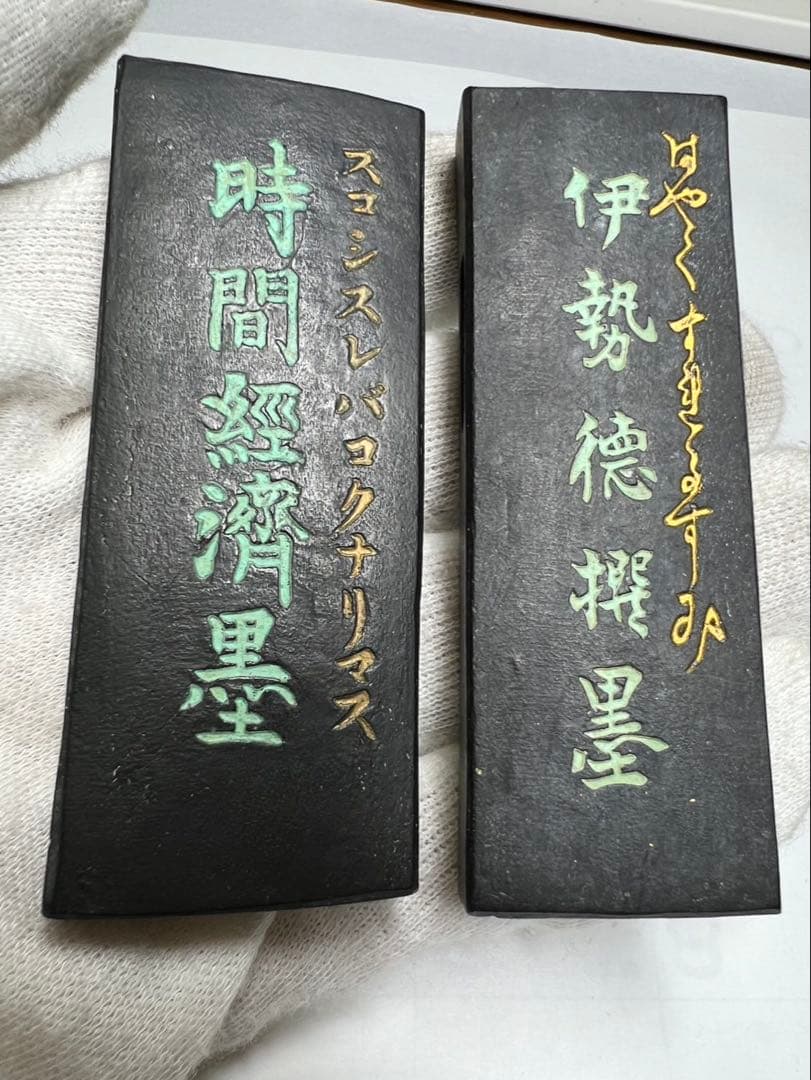 スコシスレバコクナリマス
時間經濟墨
はやくすれるすみ
伊勢德撰墨